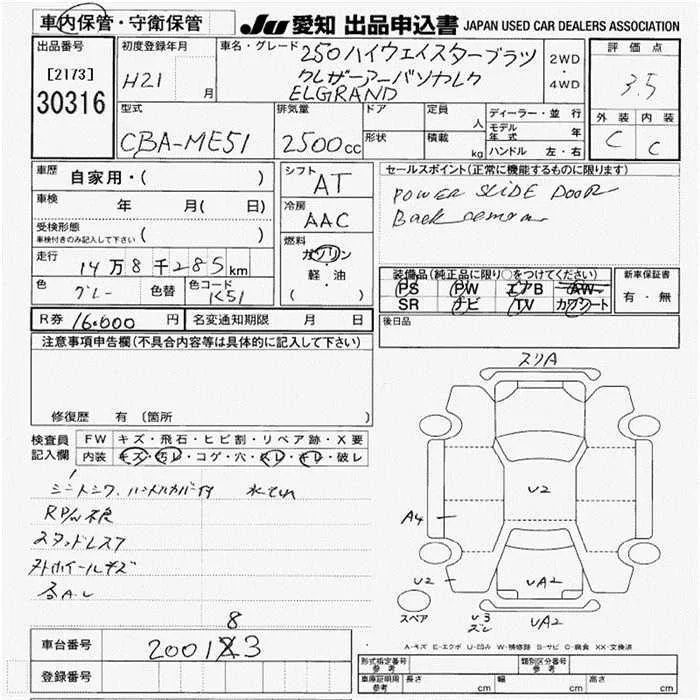 車内保管・守衛保管
JU 愛知 出品申込書 JAPAN USED CAR DEALERS ASSOCIATION
出品番号
[2173]
30316
初度登録年月
H21 月
車名・グレード
250ハイウェイスターブラッ
クレザーアーバンセレク
ELGRAND
2WD
・
4WD
評価点
3.5
外装 内装
C C
型式
CBA-ME51
排気量
2500cc
ドア
形状
定員 人
積載 kg
ディーラー・並行
モデル年式 年
ハンドル 左・右
車歴 自家用・( )
車検 年 月( 日)
受検形態
車検付きのみ記入して下さい ( )
走行 14万8千285km
色 グレー 色替 色コード K51
シフト
AT
冷房
AAC
燃料
ガソリン
・
軽・油
( )
セールスポイント(正常に機能するものに限ります)
POWER SLIDE DOOR
Back
装備品(純正品に限り○をつけてください)
PS PW エアB AW
SR ナビ TV カワシート
新車保証書
有・無
後日品
R券 16.000 円 名変通知期限 月 日
注意事項申告欄(不具合内容等は具体的に記入して下さい)
修復歴 有 〔箇所 〕
検査員
記入欄
FW キズ・飛石・ヒビ割・リペア跡・X要
内装 キズ・汚レ・コゲ・穴・スレ・キレ・破レ
シートシワ、ハンドルカバー付
R P/W不良
スタッドレス
外ホイールキズ
スリA
U2
A4
U2
UA2
U3
ズレ
UA2
スペア
A-キズ E-エクボ U-凹み W-補修跡 S-サビ C-腐食 XX-交換済
車台番号 200183
8
登録番号
形式指定番号
参考
類別区分番号
参考
車庫証明用
参考
長さ cm
幅 cm
高さ cm